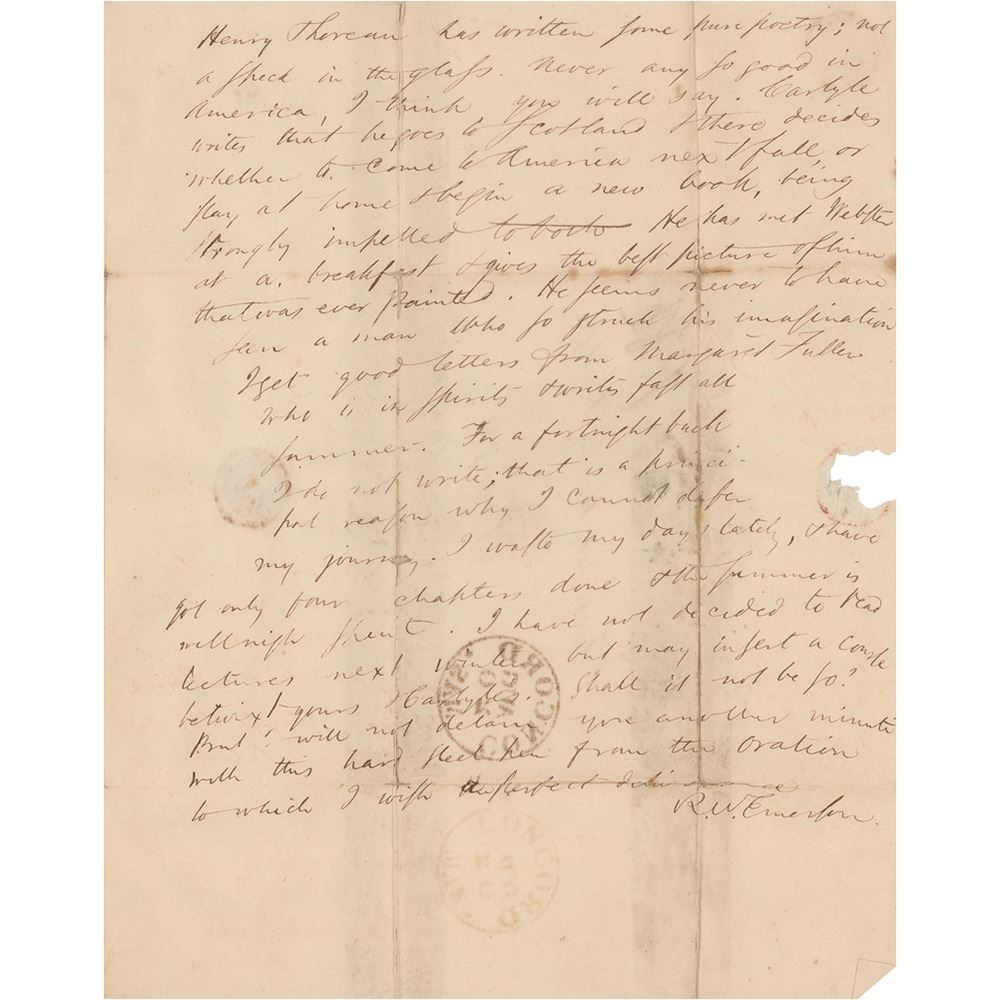 Henry Thoreau has written some pure poetry; not
a speck in the glass. Never any so good in
America, I think you will say. Carlyle
writes that he goes to Scotland & there decides
whether to come to America next fall, or
stay at home & begin a new book, being
strongly impelled to both He has met Webster
at a breakfast & gives the best picture of him
that was ever painted. He seems never to have
seen a man who so struck his imagination
I get good letters from Margaret Fuller
who is in spirits & writes fast all
summer. For a fortnight back
I do not write; that is a princi-
pal reason why I cannot defer
my journey. I waste my days lately, & have
got only four chapters done & the summer is
wellnigh spent. I have not decided to read
lectures next winter but may insert a course
betwixt yours & Carlyle's. Shall it not be so?
But I will not detain you another minute
with this hard steel pen from the oration
to which I wish the perfect
R. W. Emerson.
CONCORD
AUG
MAS.
CONCORD
AUG
20
MAS.